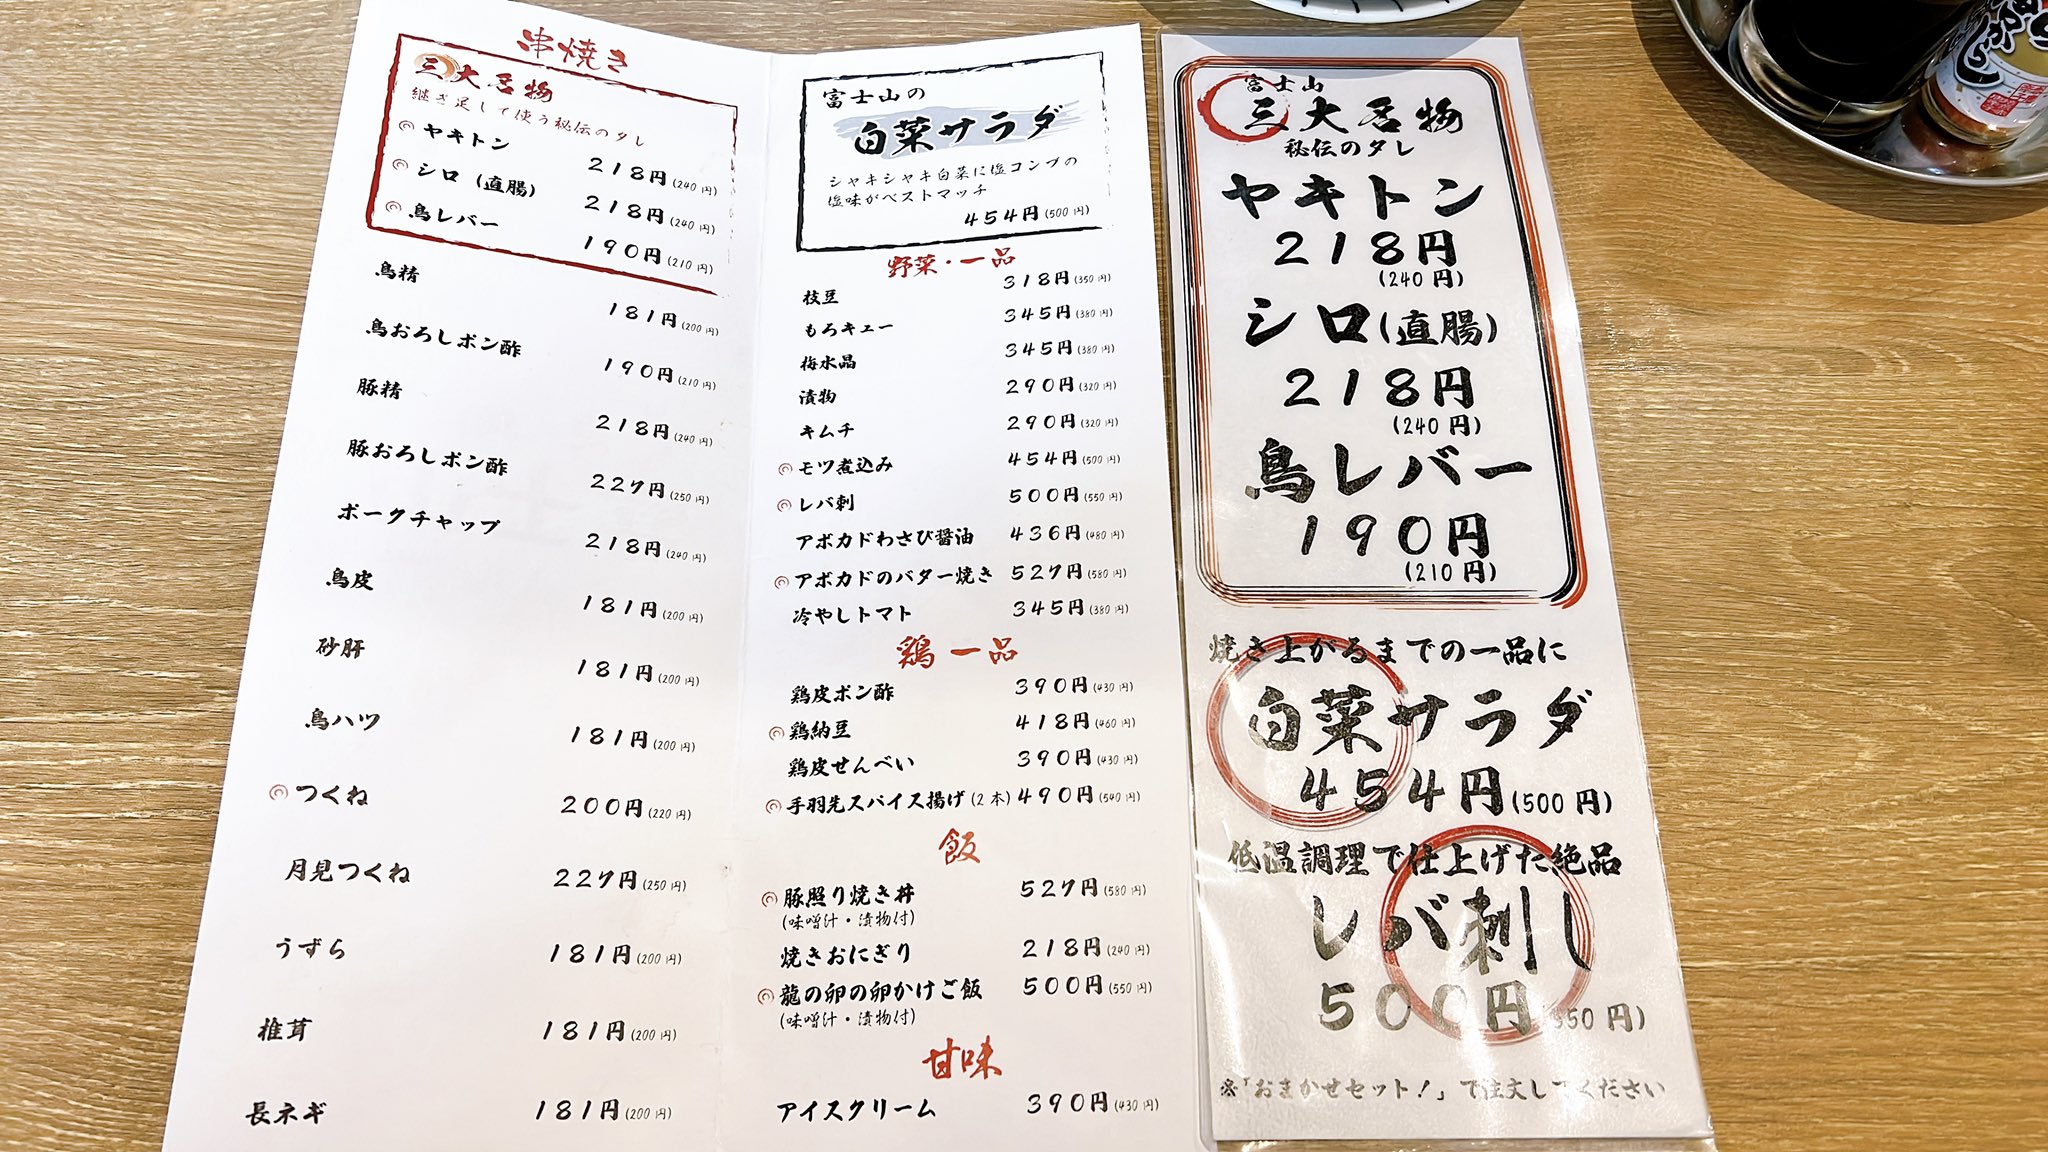 串焼き
三大名物
継ぎ足して使う秘伝のタレ
ヤキトン 218円(240円)
シロ(直腸) 218円(240円)
鳥レバー 190円(210円)
鳥精 181円(200円)
鳥おろしポン酢 190円(210円)
豚精 218円(240円)
豚おろしポン酢 227円(250円)
ポークチャップ 218円(240円)
鳥皮 181円(200円)
砂肝 181円(200円)
鳥ハツ 181円(200円)
つくね 200円(220円)
月見つくね 227円(250円)
うずら 181円(200円)
椎茸 181円(200円)
長ネギ 181円(200円)
富士山の
白菜サラダ
シャキシャキ白菜に塩コンブの
塩味がベストマッチ
454円(500円)
野菜・一品
枝豆 318円(350円)
もろキュー 345円(380円)
梅水晶 345円(380円)
漬物 290円(320円)
キムチ 290円(320円)
モツ煮込み 454円(500円)
レバ刺 500円(550円)
アボカドわさび醤油 436円(480円)
アボカドのバター焼き 527円(580円)
冷やしトマト 345円(380円)
鶏一品
鶏皮ポン酢 390円(430円)
鶏納豆 418円(460円)
鶏皮せんべい 390円(430円)
手羽先スパイス揚げ(2本) 490円(540円)
飯
豚照り焼き丼 527円(580円)
(味噌汁・漬物付)
焼きおにぎり 218円(240円)
龍の卵の卵かけご飯 500円(550円)
(味噌汁・漬物付)
甘味
アイスクリーム 390円(430円)
富士山
三大名物
秘伝のタレ
ヤキトン
218円
(240円)
シロ(直腸)
218円
(240円)
鳥レバー
190円
(210円)
焼き上がるまでの一品に
白菜サラダ
454円(500円)
低温調理で仕上げた絶品
レバ刺し
500円(550円)
※「おまかせセット!」で注文してください